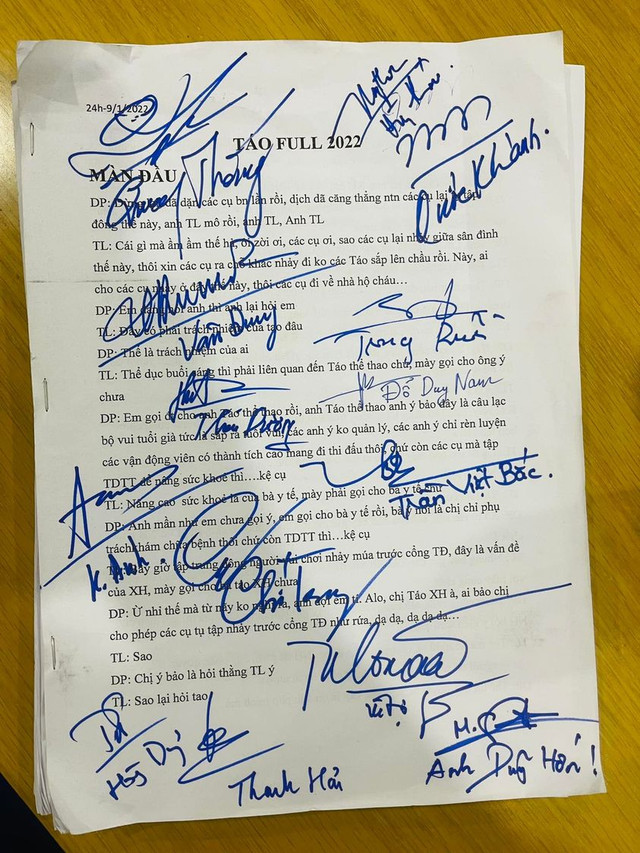 24h-9/1/2022
TÁO FULL 2022
MÀN ĐẦU
Quang Thắng
Quốc Khánh.
DP: đã dặn các cụ bn lần rồi, dịch dã căng thẳng ntn các cụ lại
đông thế này, anh TL mô rồi, anh TL, Anh TL
TL: Cái gì mà ầm ầm thế hả, ơi các cụ ơi, sao các cụ lại nhảy giữa sân đình
thế này, thôi xin các cụ ra chỗ khác nhảy đi ko các Táo sắp lên chầu rồi. Này, ai
cho các cụ nhảy ở đây thế này, thôi các cụ đi về nhà hộ cháu…
DP: Em đang hỏi anh thì anh lại hỏi em
TL: Đây có phải trách nhiệm của tao đâu
Vân Dung
DP: Thế là trách nhiệm của ai
Trung Ruồi
TL: Thể dục buổi sáng thì phải liên quan đến Táo thể thao chứ, mày gọi cho ông ý
chưa
Đỗ Duy Nam
DP: Em gọi cho anh Táo thể thao rồi, anh Táo thể thao anh ý bảo đây là câu lạc
Thái Dương
bộ vui tuổi già tức là sắp ra tuổi vui, các anh ý ko quản lý, các anh ý chỉ rèn luyện
các vận động viên có thành tích cao mang đi thi đấu thôi, chứ còn các cụ mà tập
TDTT để nâng sức khoẻ thì….kệ cụ
Trần Việt Bắc.
TL: Nâng cao sức khoẻ là của bà y tế, mày phải gọi cho bà y tế chứ
DP: Anh mần như em chưa gọi ý, em gọi cho bà y tế rồi, bà y nói là chị chỉ phụ
trách khám chữa bệnh thôi chứ còn TDTT thì…kệ cụ
K. Anh.
giờ tập trung đông người vui chơi nhảy múa trước cổng TĐ, đây là vấn đề
của XH, mày gọi cho bà táo XH chưa
Chí Trung
DP: Ừ nhỉ thế mà từ nãy ko nghĩ ra, anh đợi em tí. Alo, chị Táo XH à, ai bảo chị
cho phép các cụ tụ tập nhảy trước cổng TĐ như rứa, dạ dạ, dạ dạ dạ…
TL: Sao
DP: Chị ý bảo là hỏi thằng TL ý
TL: Sao lại hỏi tao
Thanh Hải
Anh Duy Hơn!